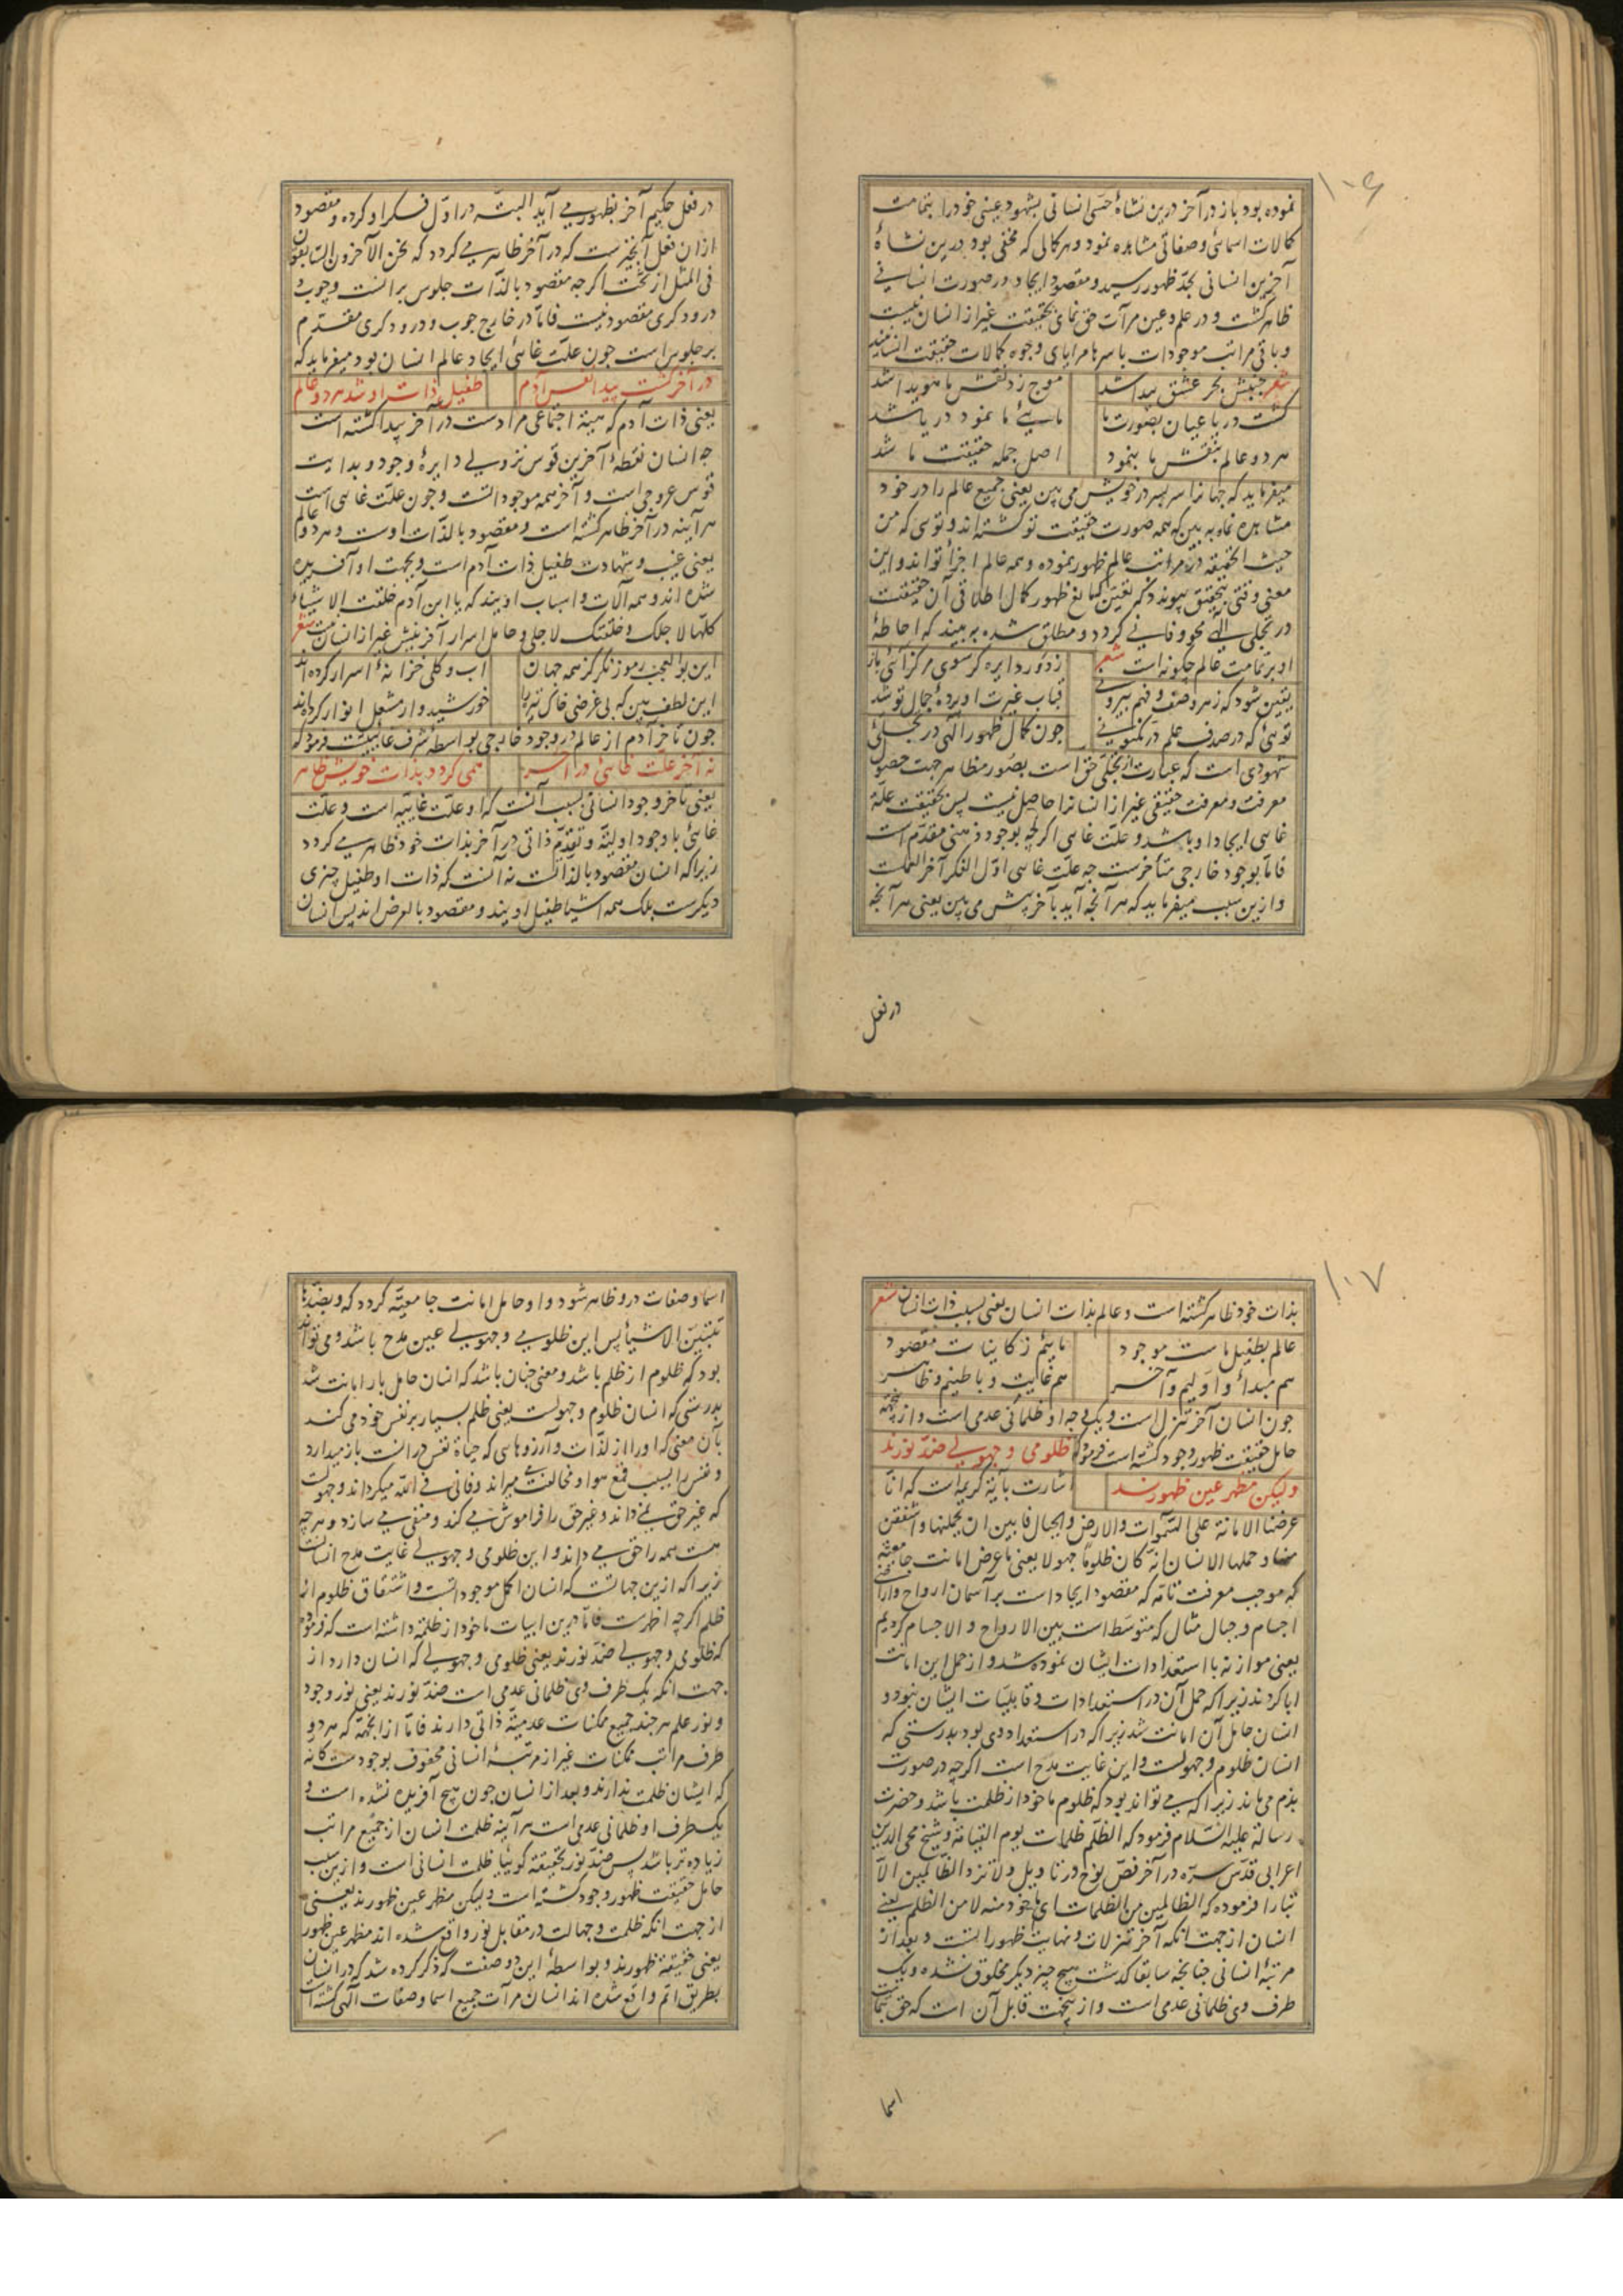 ۱۰۶
نموده بود باز در آخر درین نشاهٔ حسی انسانی بشهود عینی خود را بتمامت
کمالات اسمائی و صفاتی مشاهده نمود و هر کمالی که مخفی بود درین نشاهٔ
آخرین انسانی بحدّ ظهور رسید و مقصود ایجاد در صورت انسانی
ظاهر کشت و در علم و عین مرآت حق نمای بحقیقت غیر از انسان نیست
و باقی مراتب موجودات باسرها مرایای وجوه کمالات حقیقت انسانیند
شعر جنبش بحر عشق پیدا شد موج زد نقش ما هویدا شد
کشت دریا عیان بصورت ما مایئ ما نمود دریا شد
هر دو عالم بنقش ما بنمود اصل جمله حقیقت ما شد
میفرماید که جهانرا سر بسر در خویش می بین یعنی جمیع عالم را در خود
مشاهده نماه به بین که همه صورت حقیقت تو کشته اند و توئی که من
حیث الحقیقه در مراتب عالم ظهور نموده و همه عالم اجزأ تو اند و این
معنی وقتی بتحقیق پیوندد که تعین که مانع ظهور کمال اطلاقی آن حقیقت
در تجلی الٓهی محو و فانی کردد و مطلق شده به بیند که احاطهٔ
او بر تمامت عالم چکونه است شعر زدور دایره کر سوی مرکز آئی باز
یقین شود که زهر وصف و فهم بیرونی قباب غیرت او پردهٔ جمال تو شد
توئی که در صدف علم در مکنونی چون کمال ظهور الٓهی در تجلئ
شهودی است که عبارت از تجلّی حق است بصور مظاهر جهت حصول
معرفت و معرفت حقیقی غیر از انسانرا حاصل نیست پس بحقیقت علّة
غائی ایجاد او باشد و علّت غائی اکرچه بوجود ذهنی مقدّم است
فامّا بوجود خارجی متأخرست چه علّت غائی اوّل الفکر آخر العملست
و ازین سبب میفرماید که هر آنچه آید بآخر پیش می بین یعنی هر آنچه
در فعل
در فعل حکیم آخر بظهور می آید البتّه در اوّل فکر او کرده و مقصود
ازان فعل آنچیزست که در آخر ظاهر می کردد که نحن الآخرون السّابقون
فی المثل از تخت اکرچه مقصود بالذّات جلوس برانست و چوب و
درودکری مقصود نیست فامّا در خارج چوب و درودکری مقدّم
بر جلوس است چون علّت غائی ایجاد عالم انسان بود میفرماید که
در آخر کشت پیدا نفس آدم طفیل ذات او شد هر دو عالم
یعنی ذات آدم که هیئة اجتماعی مراد است در آخر پیدا کشته است
چه انسان نقطهٔ آخرین قوس نزولی دایرهٔ وجود و بدایت
قوس عروجی است و آخر همه موجوداتست و چون علّت غائی است
هر آینه در آخر ظاهر کشته است و مقصود بالذّات اوست و هر دو عالم
یعنی غیب و شهادت طفیل ذات آدم است و بجهت او آفریده
شده اند و همه آلات و اسباب اویند که یا ابن آدم خلقت الاشیاء
کلّها لاجلک و خلقتک لاجلی و حامل اسرار آفرینش غیر از انسان نیست شعر
این بوالعجب رموز نکر کز همه جهان آب و کلی خزانهٔ اسرار کرده اند
این لطف بین که بی غرضی خاک تیره را خورشیدوار مشعل انوار کرده اند
چون تأخر آدم از عالم در وجود خارجی بواسطهٔ شرف غائیّت فرمود که
نه آخر علّت غائی در آخر همی کردد بذات خویش ظاهر
یعنی تأخر وجود انسانی بسبب آنست که او علّت غاییه است و علّت
غائی با وجود اولیّة و تقدّم ذاتی در آخر بذات خود ظاهر می کردد
زیرا که انسان مقصود بالذّاتست نه آنست که ذات او طفیل چیزی
دیکرست بلک همه اشیا طفیل اویند و مقصود بالعرض اند پس انسان
۱۰۷
بذات خود ظاهر کشته است و عالم بذات انسان یعنی بسبب ذات انسان شعر
عالم بطفیل ماست موجود ماییم ز کاینات مقصود
هم مبدأ و اولیم و آخر هم غایت و باطنیم و ظاهر
چون انسان آخر تنزل است و یک وجه او ظلمانی عدمی است و ازینجهة
حامل حقیقت ظهور وجود کشته است فرمود که ظلومی و جهولی ضدّ نورند
ولیکن مظهر عین ظهورند اشارت بآیة کریمه است که انّا
عرضنا الامانة علی السّموات والارض والجبال فابین ان یحملنها و اشفقن
منها و حملها الانسان انّه کان ظلوماً جهولا یعنی ما عرض امانت جامعیّة
که موجب معرفت تامّه که مقصود ایجاد است بر آسمان ارواح و اراضی
اجسام و جبال مثال که متوسّط است بین الارواح و الاجسام کردیم
یعنی موازنه با استعدادات ایشان نموده شد و از حمل این امانت
ابا کردند زیرا که حمل آن در استعدادات و قابلیّات ایشان نبود و
انسان حامل آن امانت شد زیرا که در استعداد وی بود بدرستی که
انسان ظلوم و جهولست و این غایت مدح است اکرچه در صورت
بذم می ماند زیرا که می تواند بود که ظلوم ماخوذ از ظلمت باشد و حضرت
رسالة علیه السّلام فرمود که الظّلم ظلمات یوم القیامة و شیخ محی الدین
اعرابی قدّس سرّه در آخر فصّ نوح در تاویل و لا تزد الظّالمین الّا
تبارا فرموده که الظالمین من الظلمات ای ماخوذ منه لا من الظلم یعنی
انسان از جهت آنکه آخر تنزلات و نهایت ظهور است و بعد از
مرتبهٔ انسانی چنانچه سابقا کذشت هیچ چیز دیکر مخلوق نشده و یک
طرف وی ظلمانی عدمی است و ازینجهت قابل آن است که حق بتمامت
اسما
اسما و صفات درو ظاهر شود و او حامل امانت جامعیّه کردد که و بضدّها
تتبیّن الاشیأ پس این ظلومی و جهولی عین مدح باشد و می تواند
بود که ظلوم از ظلم باشد و معنی چنان باشد که انسان حامل بار امانت شد
بدرستی که انسان ظلوم و جهولست یعنی ظلم بسیار بر نفس خود می کند
بآن معنی که او را از لذّات و آرزوهایی که حیاة نفس در انست باز میدارد
و نفس را بسبب قمع هوا و مخالفت می میراند و فانی فی اللّه میکرداند و جهولست
که غیر حق نمی داند و غیر حق را فراموش می کند و منفی می سازد و هر چه
هست همه را حق می داند و این ظلومی و جهولی غایت مدح انسانست
زیرا که ازین جهاتست که انسان اکمل موجوداتست و اشتقاق ظلوم از
ظلم اکرچه اظهرست فامّا درین ابیات ماخوذ از ظلمة داشته است که فرموده
که ظلومی و جهولی ضدّ نورند یعنی ظلومی و جهولی که انسان دارد از
جهت آنکه یک طرف وی ظلمانی عدمی است ضدّ نورند یعنی نور وجود
و نور علم هر چند جمیع ممکنات عدمیّة ذاتی دارند فامّا از آنجهّة که هر دو
طرف مراتب ممکنات غیر از مرتبهٔ انسانی محفوف بوجودست کانّه
که ایشان ظلمت ندارند و بعد از انسان چون هیچ آفریده نشده است و
یک طرف او ظلمانی عدمی است هر آینه ظلمت انسان از جمیع مراتب
زیاده تر باشد پس ضدّ نور بحقیقة کوییا ظلمت انسانی است و ازین سبب
حامل حقیقت ظهور وجود کشته است ولیکن مظهر عین ظهورند یعنی
از جهت آنکه ظلمت و جهالت در مقابل نور واقع شده اند مظهر عین ظهور
یعنی حقیقة ظهورند و بواسطهٔ این دو صفت که ذکر کرده شد که در انسان
بطریق اتم واقع شده اند انسان مرآت جمیع اسما و صفات الٓهی کشته است